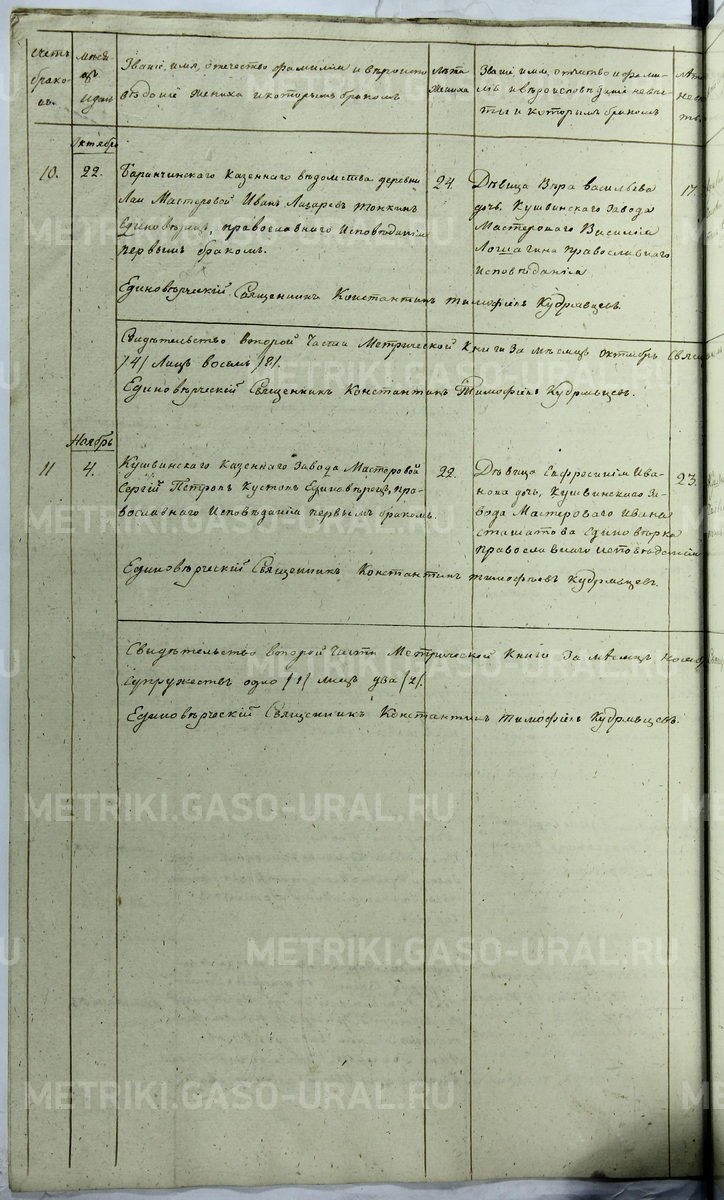 Счетъ брако-въ.
Мѣсяцъ и день
Званіе, имя, отчество фамилія и вѣроиспо-
вѣданіе жениха и которымъ бракомъ
Лѣта
жениха
Званіе имя, отчество и фами-
лія и вѣроисповѣданіе невѣс-
ты и которымъ бракомъ
Октябрь
10.
22.
Баранчинскаго казеннаго вѣдомства деревни
Лаи Мастеровой Иванъ Лазаревъ Тонкинъ
Единовѣрецъ, православнаго Исповѣданія
первымъ бракомъ.
24.
Дѣвица Вѣра Васильева
дочь, Кушвинскаго Завода
Мастероваго Василія
Лошагина православнаго
Исповѣданія
17.
Единовѣрческій Священникъ Константинъ Тимофѣевъ Кудрявцевъ.
Свидѣтельство второй Части Метрической Книги За мѣсяцъ октябрь
/4/ Лицъ восемь /8/.
Единовѣрческій Священникъ Константинъ Тимофѣевъ Кудрявцевъ.
Ноябрь
11
4.
Кушвинскаго Казеннаго Завода Мастеровой
Сергій Петровъ Кустовъ Единовѣрецъ, пра-
вославнаго Исповѣданія первымъ бракомъ.
22.
Дѣвица Евфросинія Ива-
нова дочь, Кушвинскаго За-
вода Мастероваго Ивана
Единовѣрка
православнаго исповѣданія
23.
Единовѣрческій Священникъ Константинъ Тимофѣевъ Кудрявцевъ.
Свидѣтельство второй Части Метрической Книги За мѣсяцъ
Супружествъ одно /1/ лицъ два /2/.
Единовѣрческій Священникъ Константинъ Тимофѣевъ Кудрявцевъ.
METRIKI.GASO-URAL.RU